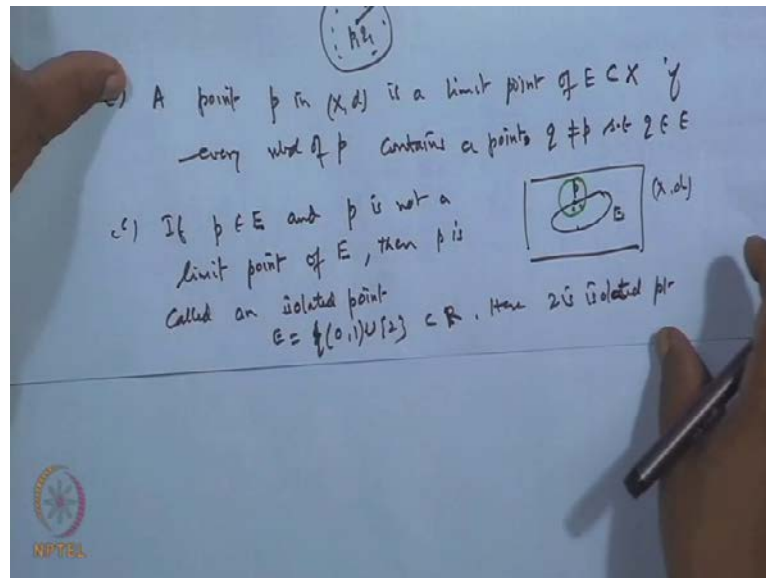 A point p in (X,d) is a limit point of E ⊂ X if
every nbd of p contains a points q ≠ p s.t q ∈ E
c') If p ∈ E and p is not a
limit point of E, then p is
called an isolated point
p
E
(X,d)
E = {(0,1)∪{2} ⊂ R. Here 2 is isolated pt
NPTEL